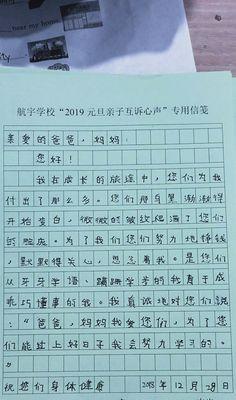 hear my home
航宇学校“2019元旦亲子互诉心声”专用信笺
亲爱的爸爸，妈妈：
您好！
我在成长的旅途中，您们为我
付出了那么多。您们那乌黑渐渐得
开始变白，微微的皱纹爬满了您们
的脸庞。为了我们您们努力地挣钱
，默默得关心，思念着我。是您们
从牙牙学语、蹒跚学步的我育于成
乖巧懂事的我。我真诚地对您们说
：“爸爸，妈妈我爱您们，为了您
们能过上好日子我会努力学习的。
”
祝您们身体健康 2018年12月28日